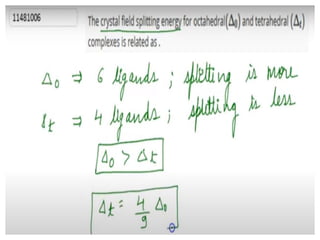 11481006
The crystal field splitting energy for octahedral(Δ₀) and tetrahedral (Δₜ)
complexes is related as .
Δo ⇒ 6 ligands ; splitting is more
Δt ⇒ 4 ligands ; splitting is less
Δo > Δt
Δt = 4/9 Δo